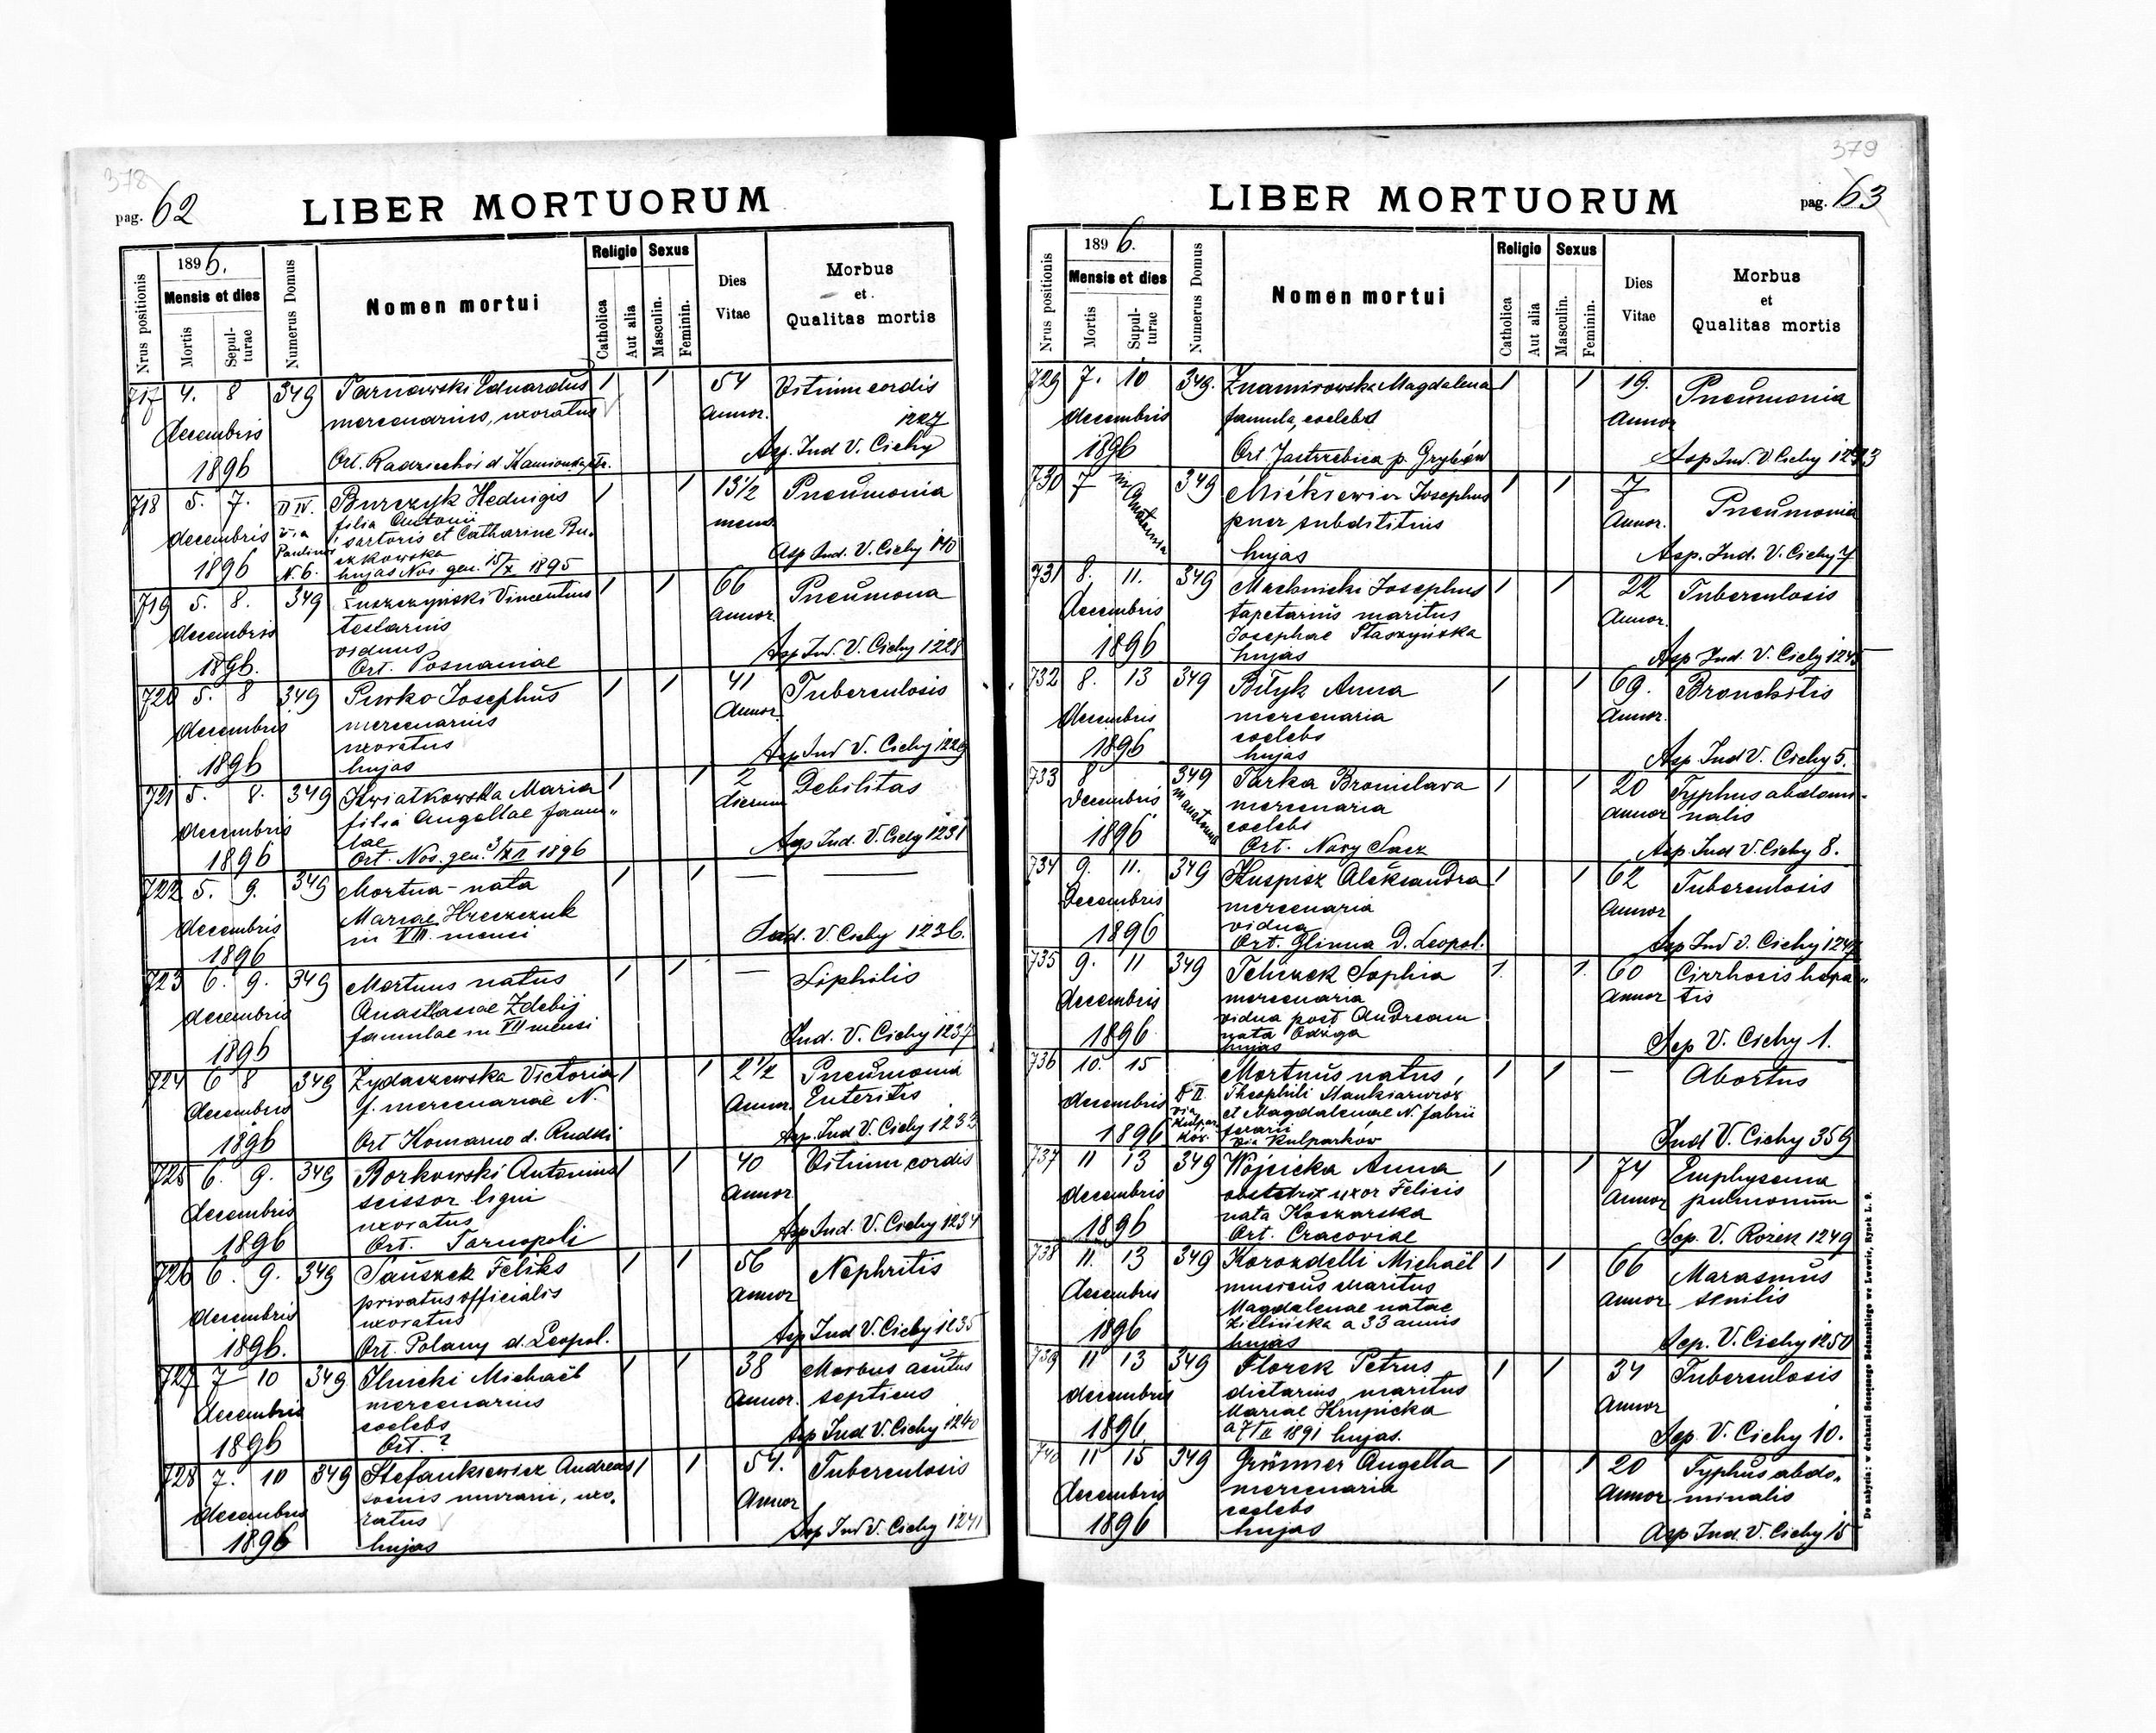 378
pag. 62
LIBER MORTUORUM
Nrus positionis
1896.
Mensis et dies
Mortis
Sepulturae
Numerus Domus
Nomen mortui
Religio
Catholica
Aut alia
Sexus
Masculin.
Feminin.
Dies
Vitae
Morbus
et
Qualitas mortis
717 4. 8 349 Tarnawski Eduardus 1 1 54 Vitium cordis
decembris mercenarius, uxoratus Annor. 1227
1896 Ort. Radziechów d. Kamionka Asp. Ind V. Cichy
718 5. 7. Burczyk Hedvigis 1 1 13 1/2 Pneumonia
filia Antonii
decembris via sartoris et Catharine Bu- mens.
Paulinor czkowska
1896 N. 6. hujas Nos. gen. 15/X 1895 Asp Ind. V. Cichy 140
719 5. 8. 349 Łuszczyński Vincentius 1 1 66 Pneumona
decembris testarius Annor.
viduus
1896. Ort. Posnaniae Asp Ind. V. Cichy 1228
720 5. 8 349 Piwko Josephus 1 1 41 Tuberculosis
decembris mercenarius Annor.
uxoratus
1896 hujas Asp Ind V. Cichy 1229
721 5. 8. 349 Kwiatkowska Maria 1 1 2 Debilitas
decembris filia Angellae famu" dierum
lae
1896 Ort. Nos. gen. 3/XII 1896 Asp Ind. V. Cichy 1231
722 5. 9. 349 Mortua-nata 1 1 — —
decembris Mariae Hreczczuk
1896 in VIII. mensi Ind. V. Cichy 1236.
723 6. 9. 349 Mortuus natus 1 1 — Siphilis
decembris Anastasiae Zdebij
1896 famulae in VII mensi Ind. V. Cichy 1237
724 6 8 349 Żydaczewska Victoria 1 1 2 1/2 Pneumonia
decembris f. mercenariae N. Annor. Enteritis
1896 Ort Komarno d. Rudki Asp. Ind V. Cichy 1233
725 6. 9. 349 Borkowski Antonius 1 1 40 Vitium cordis
decembris scissor ligni Annor.
uxoratus
1896 Ort. Tarnopoli Asp Ind. V. Cichy 1234
726 6. 9. 349 Sauszek Feliks 1 1 56 Nephritis
decembris privatus officialis Annor
uxoratus
1896. Ort. Polany d. Leopol. Asp Ind V. Cichy 1235
727 7 10 349 Ilnicki Michaël 1 1 38 Morbus acutus
decembris mercenarius Annor. septicus
coelebs
1896 Ort. ? Asp Ind V. Cichy 1240
728 7. 10 349 Stefankiewicz Andreas 1 1 54. Tuberculosis
decembris socius murarii, uxo- Annor
ratus
1896 hujas Asp Ind V. Cichy 1241
379
LIBER MORTUORUM
pag. 63
Nrus positionis
1896.
Mensis et dies
Mortis
Supulturae
Numerus Domus
Nomen mortui
Religio
Catholica
Aut alia
Sexus
Masculin.
Feminin.
Dies
Vitae
Morbus
et
Qualitas mortis
729 7. 10 349. Znamirowska Magdalena 1 1 19. Pneumonia
decembris famula, coelebs Annor
1896 Ort. Jastrzebica p. Grybów Asp Ind. V Cichy
730 7 in Anatomia 349 Mićkiewicz Josephus 1 1 7 Pneumonia
puer subdititius Annor.
hujas Asp. Ind. V. Cichy 7
731 8. 11. 349 Machnicki Josephus 1 1 22 Tuberculosis
decembris tapetarius maritus Annor.
1896 Josephae Staszyńska
hujas Asp Ind. V. Cichy 1245
732 8. 13 349 Bityk Anna 1 1 69. Bronchitis
decembris mercenaria Annor.
coelebs
1896 hujas Asp Ind V. Cichy 5.
733 8 349 Tarka Bronislava 1 1 20 Typhus abdomi-
decembris in anatomia mercenaria Annor nalis
coelebs
1896 Ort. Nowy Sacz Asp Ind V. Cichy 8.
734 9. 11. 349 Kuspisz Aleksandra 1 1 62 Tuberculosis
decembris mercenaria Annor
vidua
1896 Ort. Glinna D. Leopol. Asp Ind V. Cichy 1247
735 9. 11 349 Telczek Sophia 1. 1. 60 Cirrhosis hepa"
decembris mercenaria Annor tis
vidua post Andream
1896 nata Odzga
hujas Sep V. Cichy 1.
736 10. 15 Mortuus natus, 1 1 — Abortus
decembris via Theophili
Kulpar- et Magdalenae N. fabrii
1896 ków. ferarii
via Kulparków Ind V. Cichy 359
737 11 13 349 Wojcicka Anna 1 1 74 Emphysema
decembris obstetrix uxor Felicis Annor pulmonum
1896 nata Koczarska
Ort. Cracoviae Sep. V. Rozek 1249
738 11. 13 349 Korozdelli Michaël 1 1 66 Marasmus
decembris musicus maritus Annor senilis
Magdalenae natae
1896 Zielińska a 33 annis
hujas Sep. V. Cichy 1250
739 11 13 349 Florek Petrus 1 1 34 Tuberculosis
decembris dietarius, maritus Annor
Mariae Krupicka
1896 a 7/II 1891 hujas. Sep. V. Cichy 10.
740 11 15 349 Grünner Angella 1 1 20 Typhus abdo"
decembris mercenaria Annor minalis
coelebs
1896 hujas Asp Ind. V. Cichy 15
Do nabycia: w drukarni Szczęsnego Bednarskiego we Lwowie, Rynek L. 9.